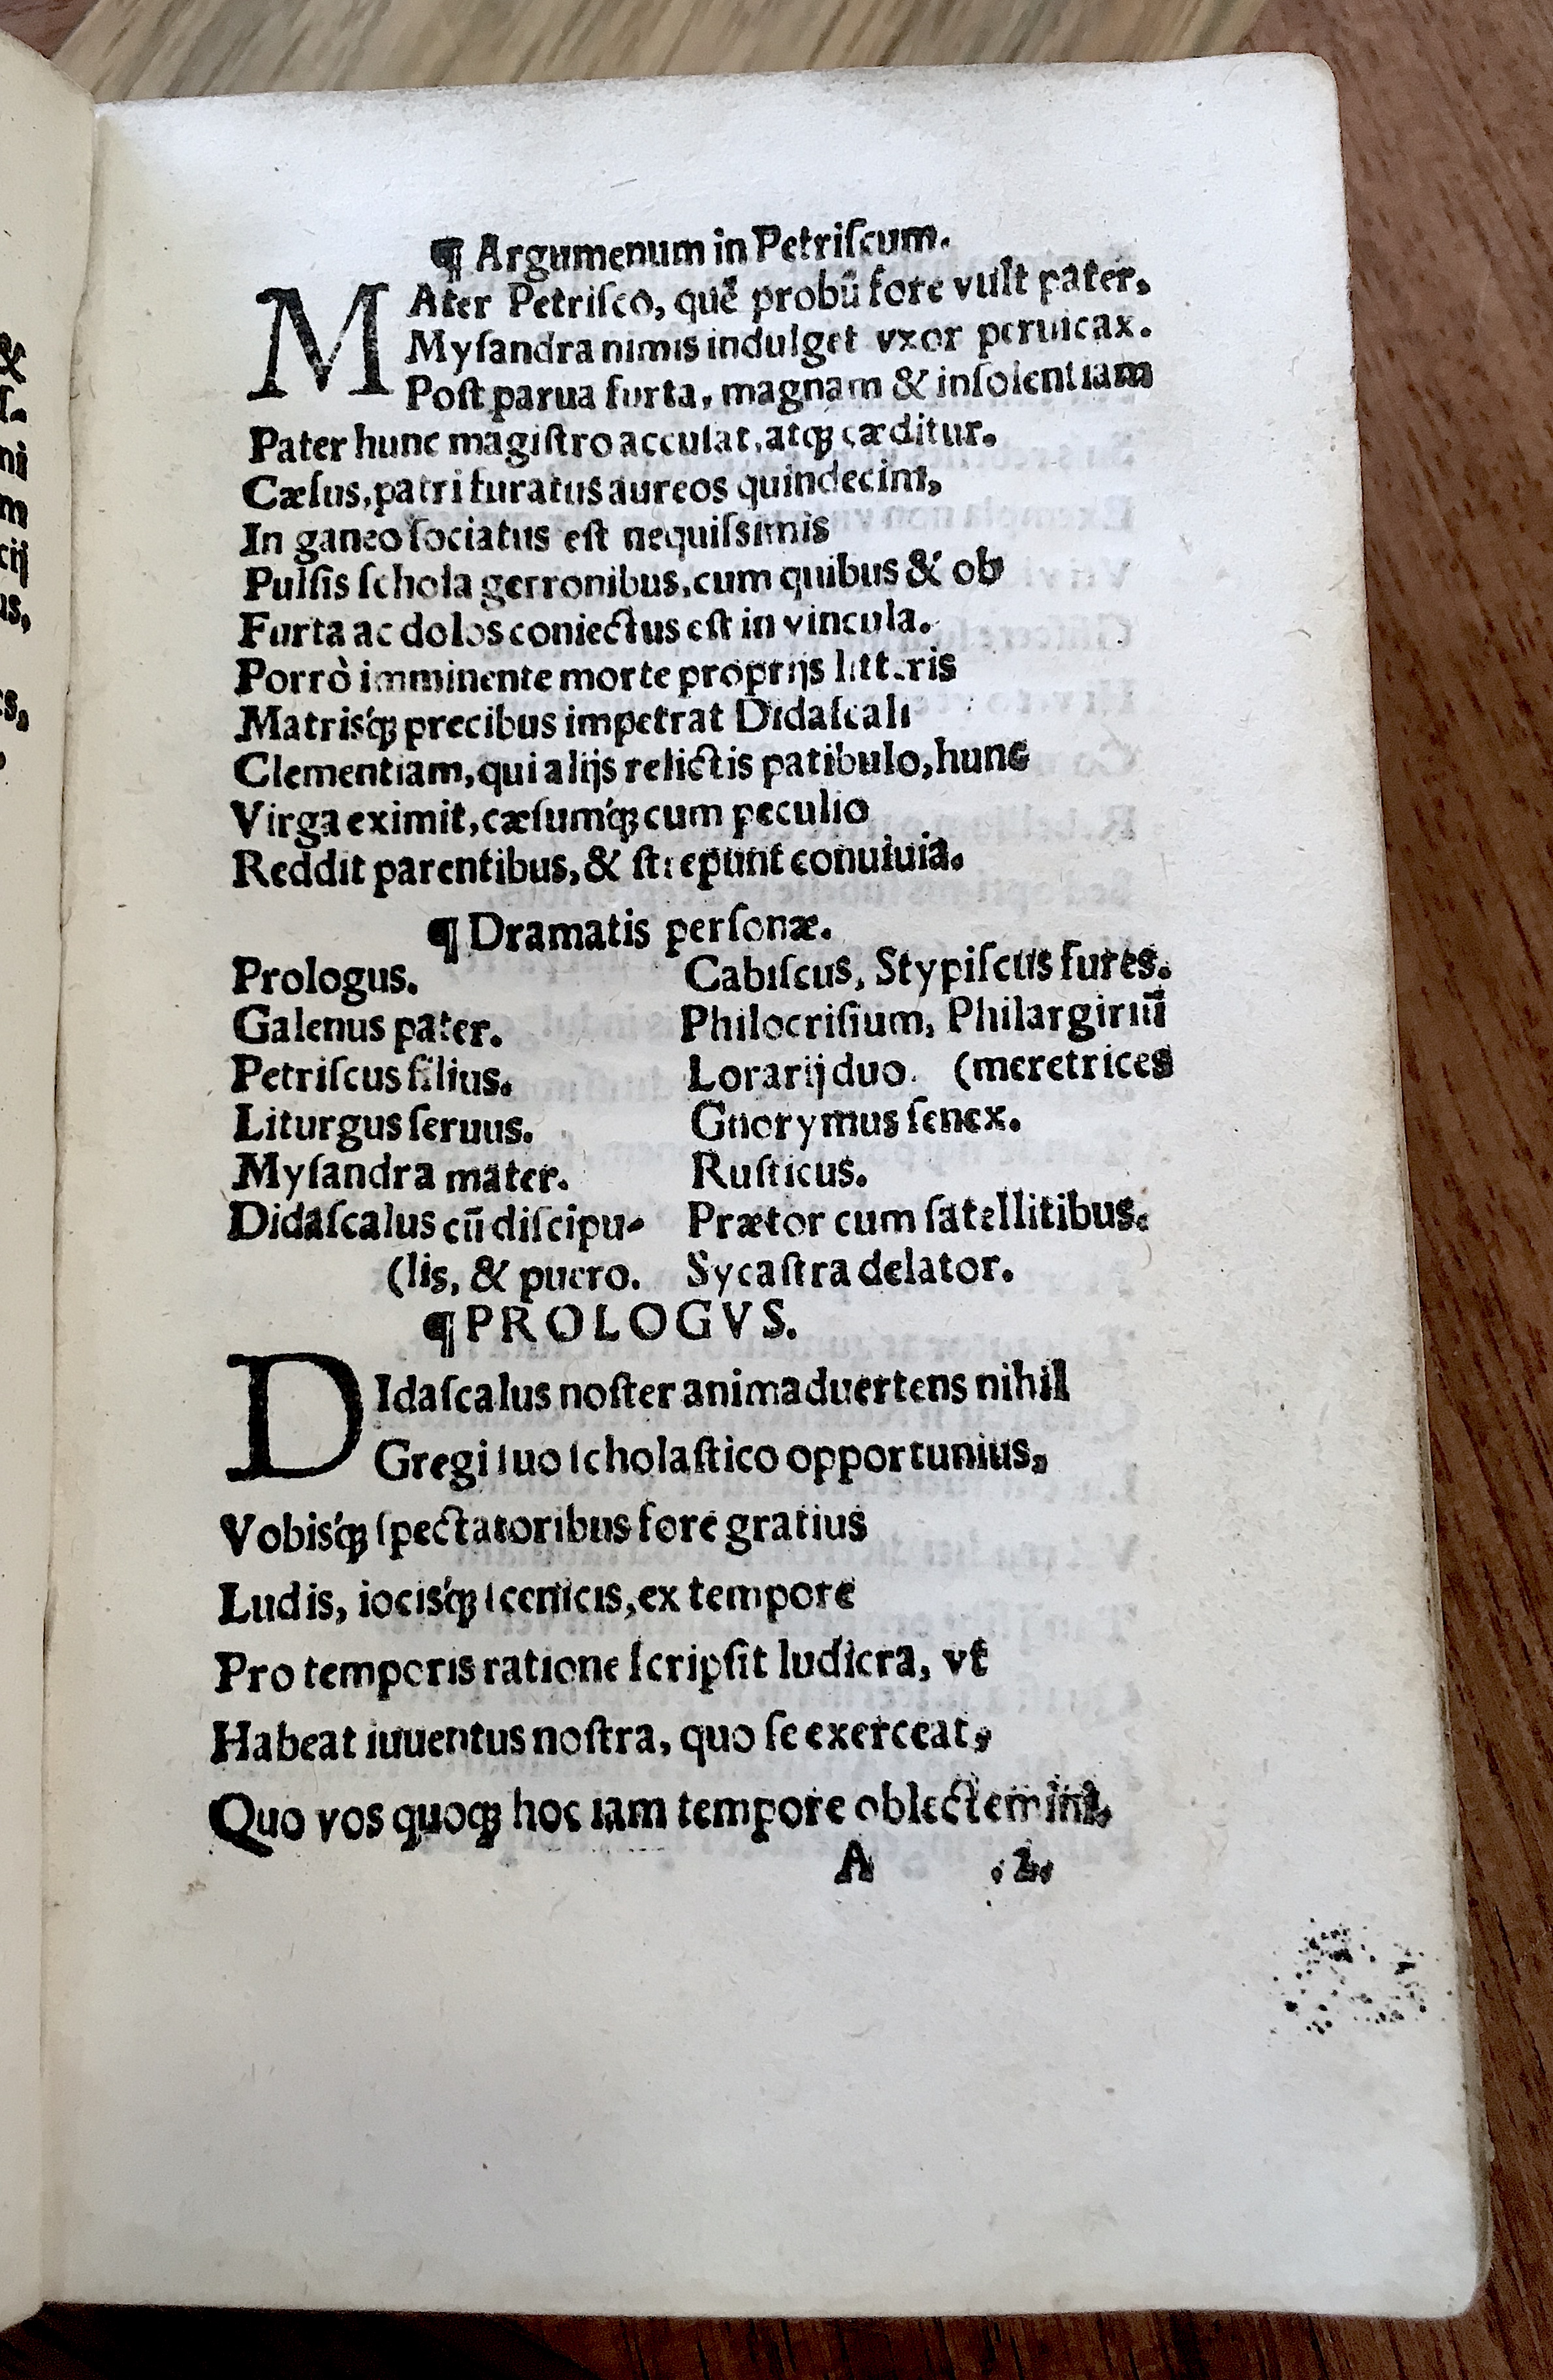 ¶ Argumenum in Petriſcum.
MAter Petriſco, quẽ probũ fore vult pater,
Myſandra nimis indulget vxor peruicax.
Poſt parua furta, magnam & inſolentiam
Pater hunc magiſtro accuſat, atq; cæditur.
Cæſus, patri furatus aureos quindecim,
In ganeo ſociatus eſt nequiſsimis
Pulſis ſchola gerronibus, cum quibus & ob
Furta ac dolos coniectus eſt in vincula.
Porrò imminente morte proprijs litteris
Matriſq́; precibus impetrat Didaſcali
Clementiam, qui alijs relictis patibulo, hunc
Virga eximit, cæſumq́; cum peculio
Reddit parentibus, & ſtrepunt conuiuia.
¶ Dramatis perſonæ.
Prologus.
Galenus pater.
Petriſcus filius.
Liturgus ſeruus.
Myſandra mater.
Didaſcalus cũ diſcipu-
(lis, & puero.
Cabiſcus, Stypiſcus fures.
Philocriſium, Philargiriũ
Lorarij duo. (meretrices
Gnorymus ſenex.
Ruſticus.
Prætor cum ſatellitibus.
Sycaſtra delator.
¶ PROLOGVS.
DIdaſcalus noſter animaduertens nihil
Gregi ſuo ſcholaſtico opportunius,
Vobiſq́; ſpectatoribus fore gratius
Ludis, iociſq́; ſcenicis, ex tempore
Pro temporis ratione ſcripſit ludicra, vt
Habeat iuuentus noſtra, quo ſe exerceat,
Quo vos quoq; hoc iam tempore oblectemini.
A .2.